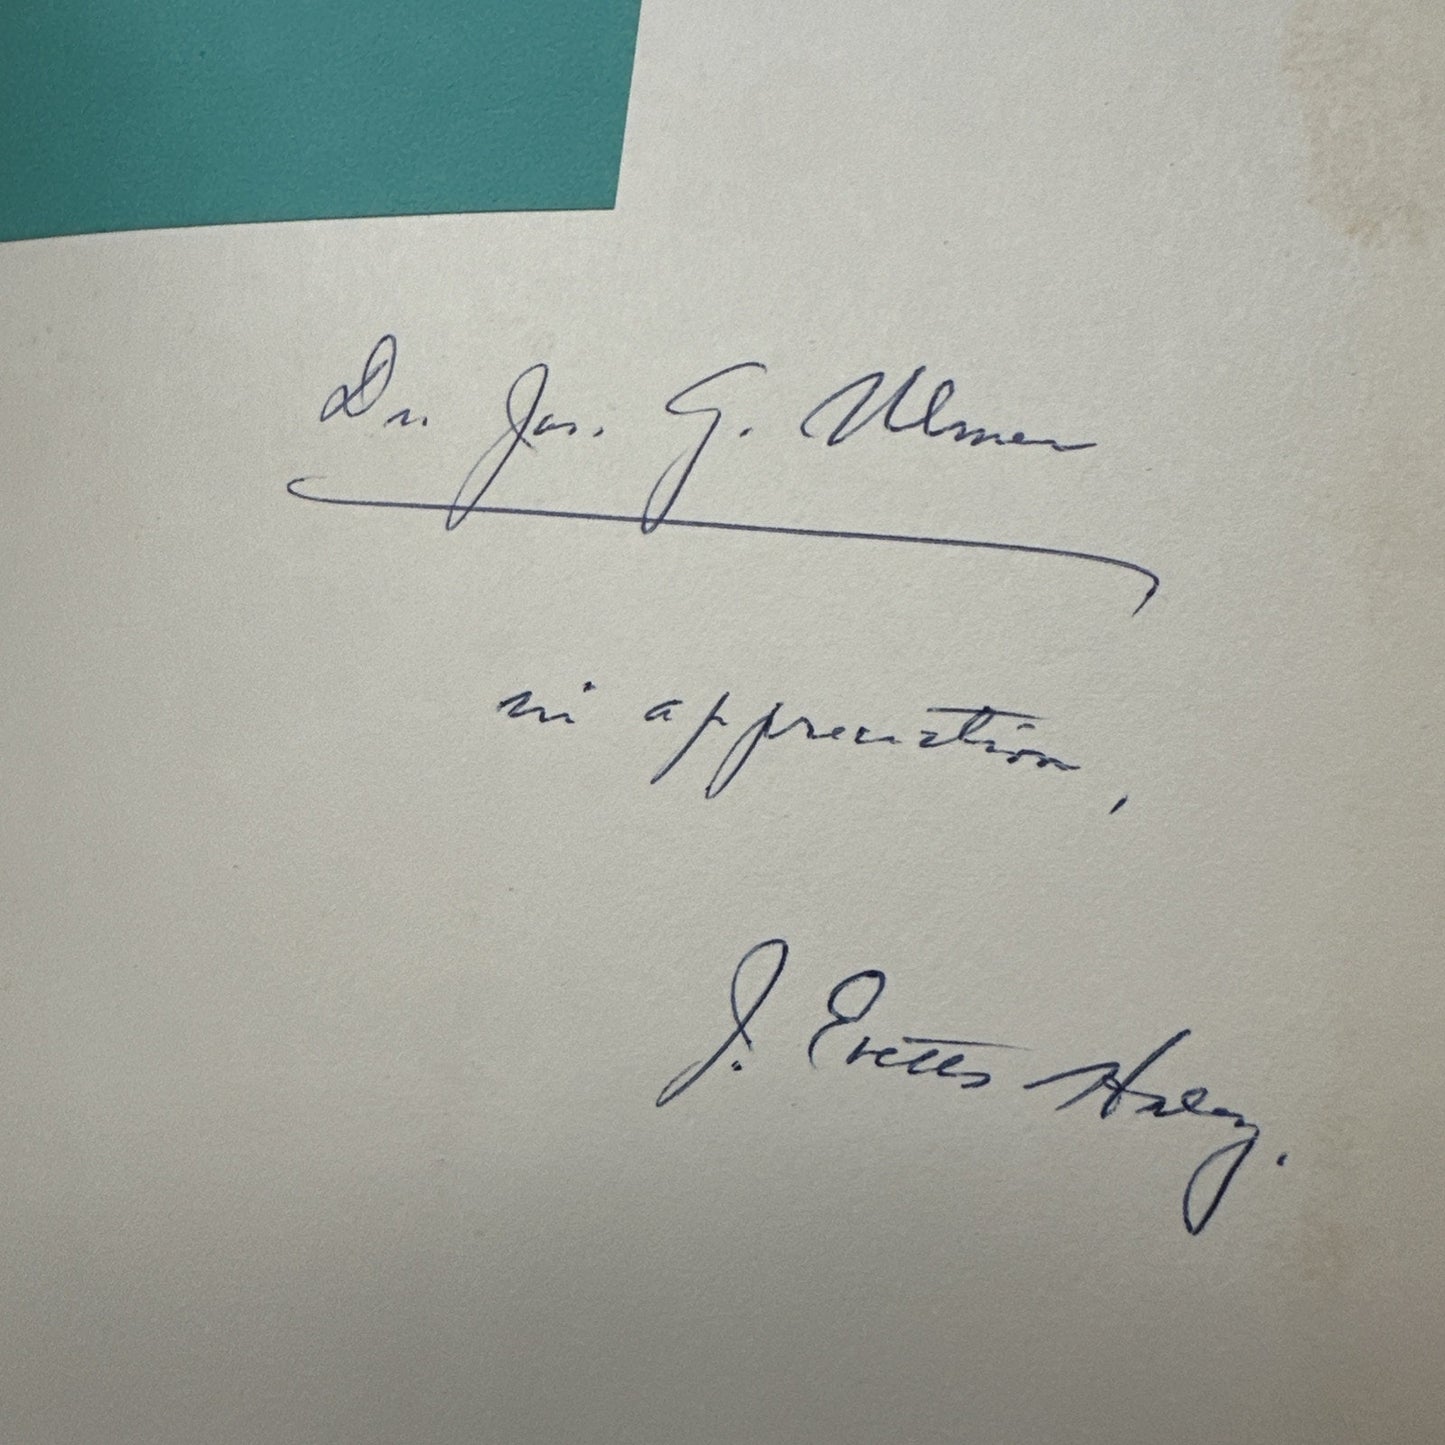 Dr. Jas. G. Ulmer
in appreciation,
J. Evetts Haley.